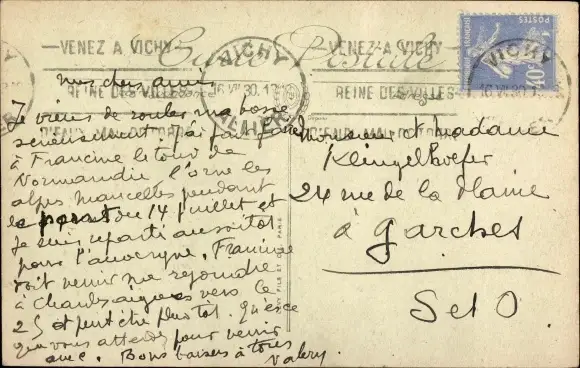 VENEZ A VICHY
REINE DES VILLES
D'EAUX
VICHY
16 VII 30
ALLIER
VENEZ A VICHY
REINE DES VILLES
VICHY
16 VII 30
Carte Postale
POSTES
40c
mes chers amis
Je viens de rouler ma bosse
serieusement j'ai fait
à Francine le tour de
Normandie l'orne les
alpes mancelles pendant
le pont du 14 juillet et
je suis reparti aussitot
pour l'auvergne. Francine
doit venir me rejoindre
à Chaudesaigues vers le
25 et peut être plus tot. Qu'est ce
que vous attendez pour venir
avec. Bons baisers à tous
Valery.
Monsieur et Madame
Klingelhoefer
24 rue de la Plaine
à Garches
S et O.